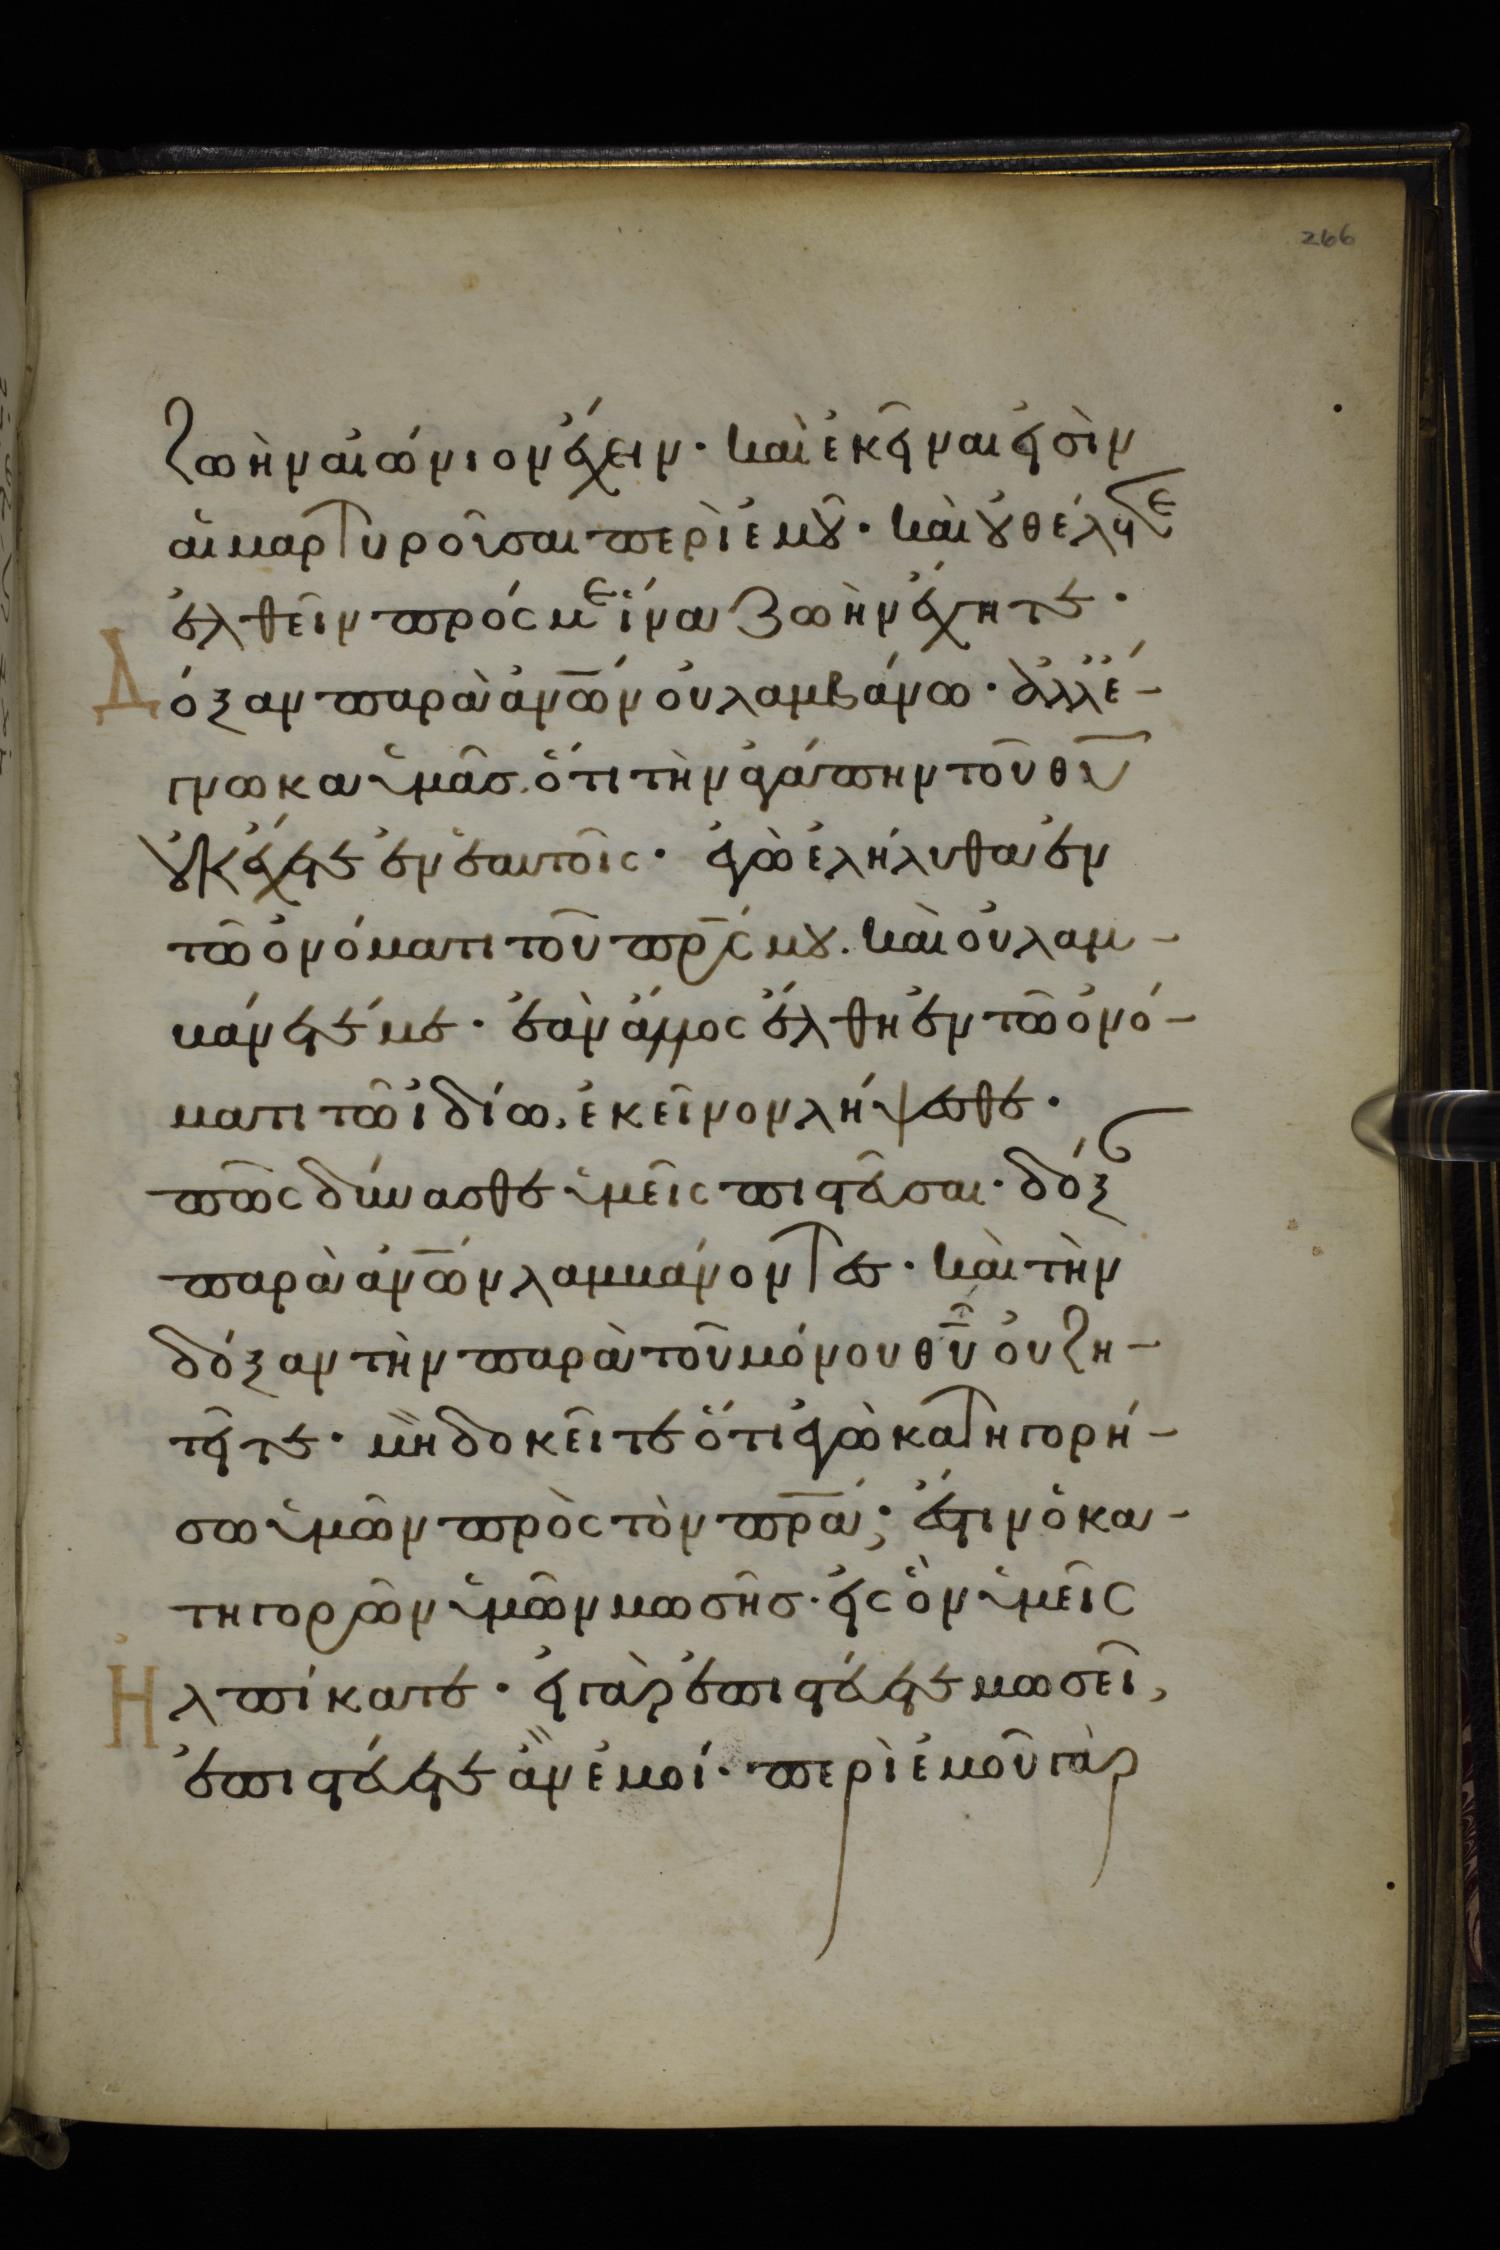 266
ζωὴν αἰώνιον ἔχειν· καὶ ἐκεῖναι εἰσὶν
αἱ μαρτυροῦσαι περὶ ἐμοῦ· καὶ οὐ θέλετε
ἐλθεῖν πρός με ἵνα ζωὴν ἔχητε·
Δόξαν παρὰ ἀνω̅ν οὐ λαμβάνω· ἀλλ' ἔ-
γνωκα ὑμᾶσ. ὅτι τὴν ἀγάπην τοῦ θυ̅
οὐκ ἔχετε ἐν ἑαυτοῖς· ἐγὼ ἐλήλυθα ἐν
τῶ ὀνόματι τοῦ πρ̅ς μου. καὶ οὐ λαμ-
βάνετέ με· ἐὰν ἄλλος ἔλθη ἐν τῶ ὀνό-
ματι τῶ ἰδίω, ἐκεῖνον λήψεσθε·
πῶς δύνασθε ὑμεῖς πιστεῦσαι· δόξαν
παρὰ ἀνω̅ν λαμβάνοντες· καὶ τὴν
δόξαν τὴν παρὰ τοῦ μόνου θυ̅ οὐ ζη-
τεῖτε· μὴ δοκεῖτε ὅτι ἐγὼ κατηγορή-
σω ὑμῶν πρὸς τὸν πρ̅α; ἔστιν ὁ κα-
τηγορῶν ὑμῶν μωσῆσ· εἰς ὃν ὑμεῖς
Ἠλπίκατε· εἰ γὰρ ἐπιστεύετε μωσεῖ,
ἐπιστεύετε ἂν ἐμοί· περὶ ἐμοῦ γὰρ